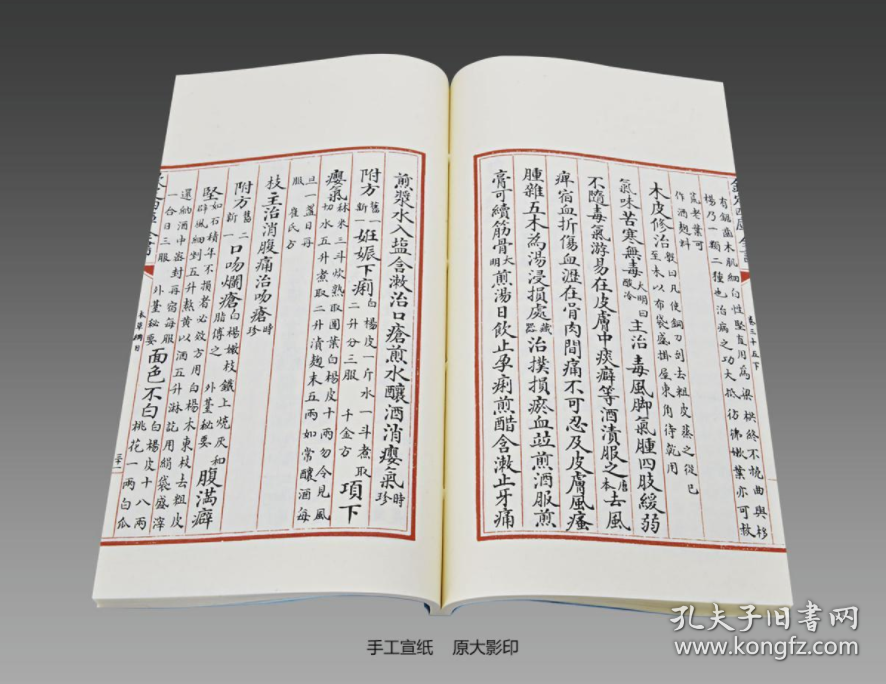 欽定四庫全書
卷三十五下
有鋸齒木肌細白性堅直用為梁栱終不撓曲與栘
楊乃一類二種也治病之功大抵彷彿嫩葉亦可救
荒老葉可
作酒麴料
木皮修治斆曰凡使銅刀刮去粗皮蒸之從巳
至未以布袋盛掛屋東角待乾用
氣味苦寒無毒大明曰酸冷主治毒風脚氣腫四肢緩弱
不隨毒氣游易在皮膚中痰癖等酒漬服之唐本去風
痹宿血折傷血瀝在骨肉間痛不可忍及皮膚風瘙
腫雜五木為湯浸損處藏器治撲損瘀血並煎酒服煎
膏可續筋骨大明煎湯日飲止孕痢煎醋含漱止牙痛
煎漿水入鹽含漱治口瘡煎水釀酒消癭氣時珍
附方舊一新一妊娠下痢白楊皮一斤水一斗煮取二升分三服 千金方項下
癭氣秫米三斗炊熟取圓葉白楊皮十兩勿令見風
切水五升煮取二升漬麴末五兩如常釀酒每
旦一盞日再
服 崔氏方
枝主治消腹痛治吻瘡時珍
附方舊二新一口吻爛瘡白楊嫩枝鐵上燒灰和脂傅之 外臺秘要腹滿癖
堅如石積年不損者必效方用白楊木東枝去粗皮
辟風細剉五升熬黃以酒五升淋訖用絹袋盛滓
還納酒中密封再宿每服一合日三服 外臺秘要面色不白白楊皮十八兩桃花一兩白瓜
本草綱目
三十一
手工宣纸 原大影印
孔夫子旧书网
kongfz.com